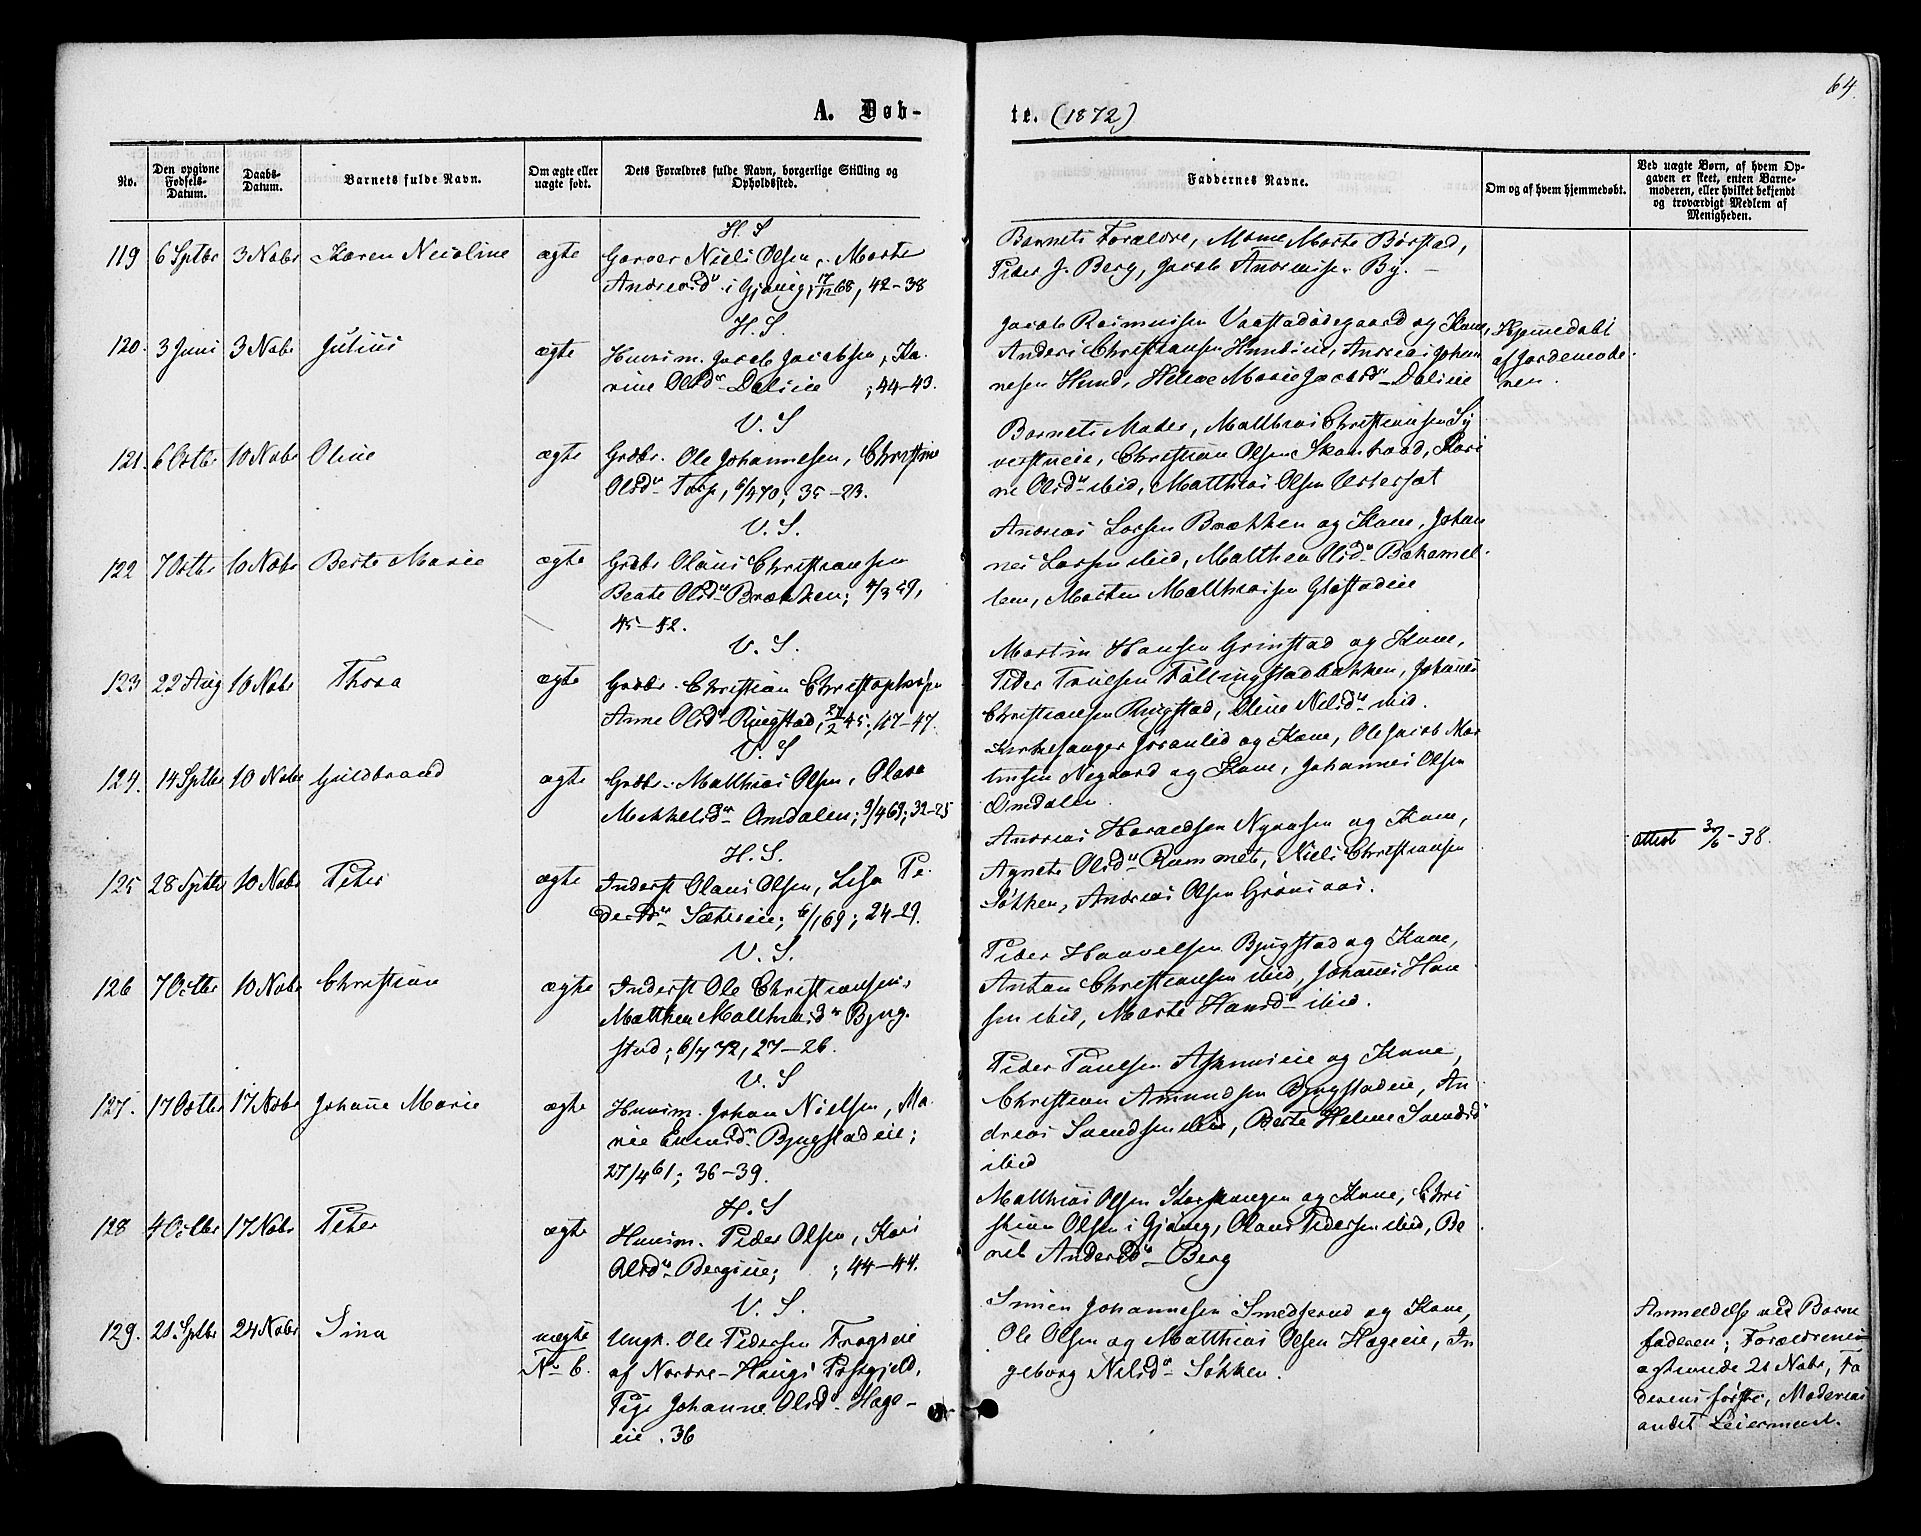 64.
A. Døb-
te. (1872)
No.
Den opgivne Fødsels-Datum.
Daabs-Datum.
Barnets fulde Navn.
Om ægte eller uægte født.
Dets Forældres fulde Navn, borgerlige Stilling og Opholdssted.
Faddernes Navne.
Om og af hvem hjemmedøbt.
Ved uægte Børn, af hvem Op-
gaven er skeet, enten Barne-
moderen, eller hvilket bekjendt
og troværdigt Medlem af
Menigheden.
H. S
119 6 Sptbr 3 Nobr Karen Nicoline ægte Garver Niels Olsen, Marte
Andersd. i Gjøvig, 17/12 68, 42-38
Barnets Forældre, Marte Børstad,
Peder J. Berg, Jacob By.
H. S.
120. 3 Juni 3 Nobr Julius ægte Huusm. Jacob Jacobsen, Ka-
rine Olsd. Dalseie ; 44-43.
Jacob Rasmussen Vaastadødegaard og Kone,
Anders Christiansen Hundeie, Andreas Johan
nesen Hund, Helene Marie Jacobsd. Dalseie
Hjemmedøbt
af Jordemode-
ren.
V. S
121. 6 Octbr 10 Nobr Oline ægte Grdbr. Ole Johannesen, Christine
Olsd. Torp, 6/4 70; 35-23.
Barnets Moder, Matthias Christiansen Sy
verstueie, Christian Olsen Kari
ne Olsd. ibid, Matthias Olsen
V. S.
122 7 Octbr 10 Nobr Berte Marie ægte Grdbr Olaus Christiansen
Beate Olsd. Brækken; 4/3 59,
45-42.
Andreas Larsen Brækken og Kone, Johan
nes Larsen ibid, Matthea Olsd.
Morten Matthiasen Glæstadeie
V. S.
123 22 Aug 10 Nobr Thora ægte Grdbr. Christian Christophersen
Anne Olsd. Ringstad, 47-47.
Martin Hansen Grimstad og Kone,
Peder Truelsen Fallingstadbakken, Johannes
Christiansen Ringstad, Oline Nilsd. ibid.
V. S
124. 14 Sptbr 10 Nobr Guldbrand ægte Grdbr. Matthias Olsen, Olava
Mikkelsd. Omdalen; 9/4 69; 32-25
Kirkesanger og Kone, Ole Jacob Mar
tinsen Negaard og Kone, Johannes Olsen
Omdalen.
H. S.
125 28 Sptbr 10 Nobr Peter ægte Inderst Olaus Olsen, Lisa Pe-
dersd. Sætreeie; 6/1 69; 24-29.
Andreas Haraldsen og Kone,
Agnete Olsd. Rammet, Niels Christiansen
Søkken, Andreas Olsen Grønaas.
attest 3/6-38.
V. S.
126 7 Octbr 10 Nobr Christian ægte Inderst Ole Christiansen,
Matthea Matthiasd. Bjug-
stad; 6/7 72, 27-26.
Peder Haavelsen Bjugstad og Kone,
Anton Christiansen ibid, Johannes Han
sen ibid, Marte Hansd. ibid.
V. S
127. 17 Octbr 17 Nobr Johanne Marie ægte Huusm. Johan Nielsen, Ma-
rie Bjugstadeie;
27/4 61; 36-39.
Peder Paulsen og Kone,
Christian Amundsen Bjugstadeie, An
dreas Svendsen ibid, Berte Helene Svendsd.
ibid
H. S
128 4 Octbr 17 Nobr Peter ægte Huusm. Peder Olsen, Kari
Olsd. Bergseie; ; 44-44.
Matthias Olsen og Kone, Chri
stian Olsen i Gjøvig, Olaus Pedersen ibid, Be
rit Andersd. Berg
V. S.
129. 21 Sptbr 24 Nobr Sina uægte
No 6.
Ungk. Ole Pedersen
af Nordre-Houg's Præstgjeld,
Pige Johanne Olsd. Hage-
eie. 36
Simen Johannesen Smedsrud og Kone,
Ole Olsen og Matthias Olsen Hageeie, In
geborg Nilsd. Søkken.
Anmeldelse ved Barne
faderen; Forældrene
ægteviede 21 Nobr, Fa
derens første, Moderens
andet Leiermaal.